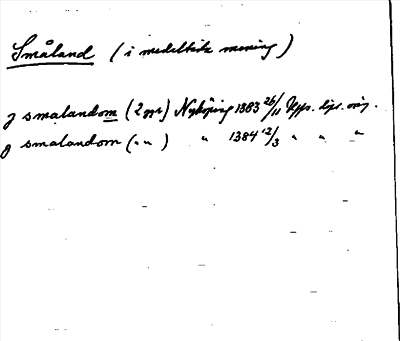 Småland (i medeltida mening)
j smalandom (2 ggr) Nyköping 1383 26/11 Upps. bjs. orig.
j smalandom („ „) „ 1384 12/3 „ „ „